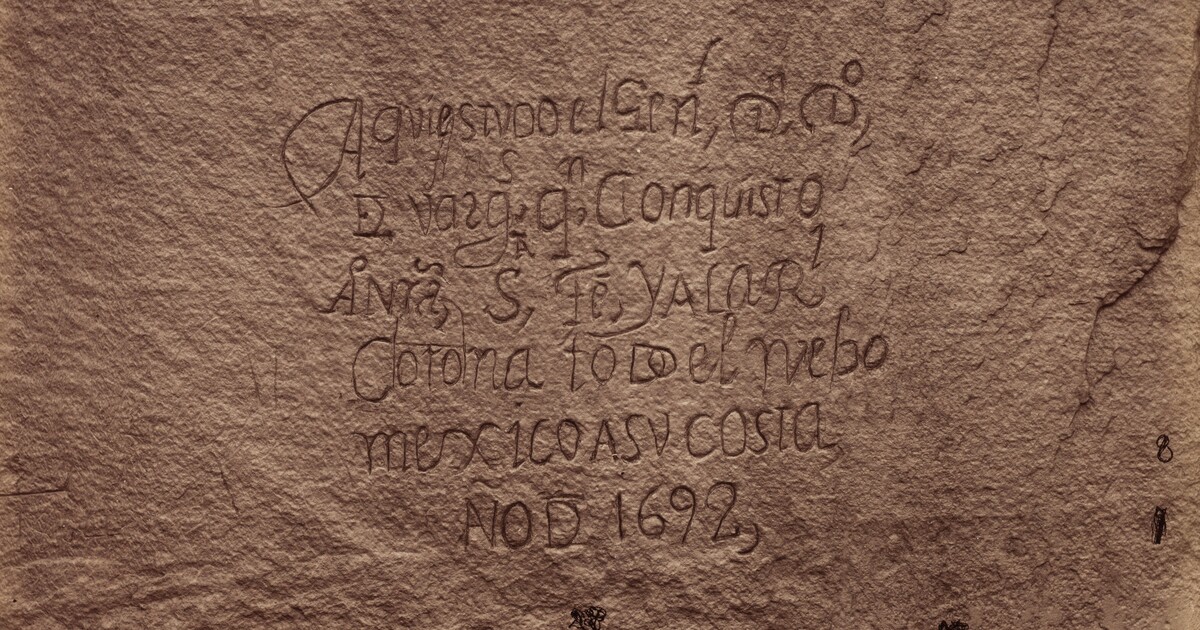 Aqui estvbo el Gen.l Dn. Do.
De varg.s qn. Conquisto
A nra. S.ta Fe, Y A la R.l
Corona todo el nvebo
mexico A sv costa
AÑO D 1692,
8